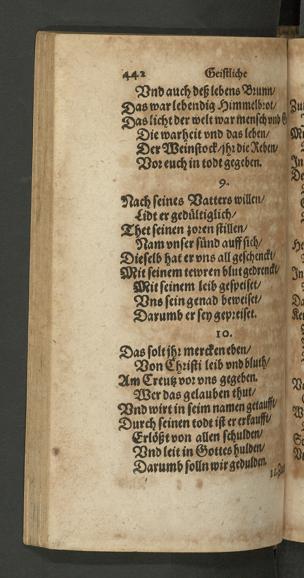 442 Geistliche
Vnd auch deß lebens Brunn/
Das war lebendig Himmelbrot/
Das liecht der welt war mensch vnd G
Die warheit vnd das leben/
Der Weinstock/jhr die Reben/
Vor euch in todt gegeben.
9.
Nach seines Vatters willen/
Lidt er gedültiglich/
Thet seinen zoren stillen/
Nam vnser sünd auff sich/
Dieselb hat er vns all geschenckt/
Mit seinem tewren blut gedrenckt/
Mit seinem leib gespeiset/
Vns sein genad beweiset/
Darumb er sey gepreiset.
10.
Das solt jhr mercken eben/
Von Christi leib vnd bluth/
Am Creutz vor vns gegeben.
Wer das gelauben thut/
Vnd wirt in seim namen getaufft/
Durch seinen todt ist er erkaufft/
Erlößt von allen schulden/
Vnd leit in Gottes hulden/
Darumb solln wir gedulden.